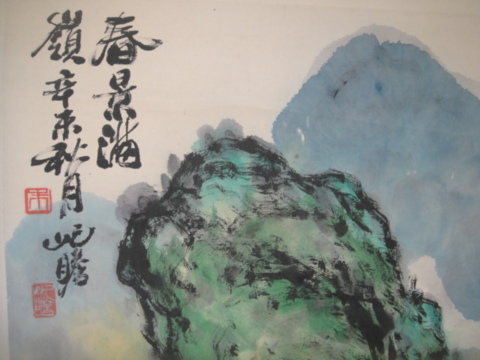 春景滿
嶺辛未秋月